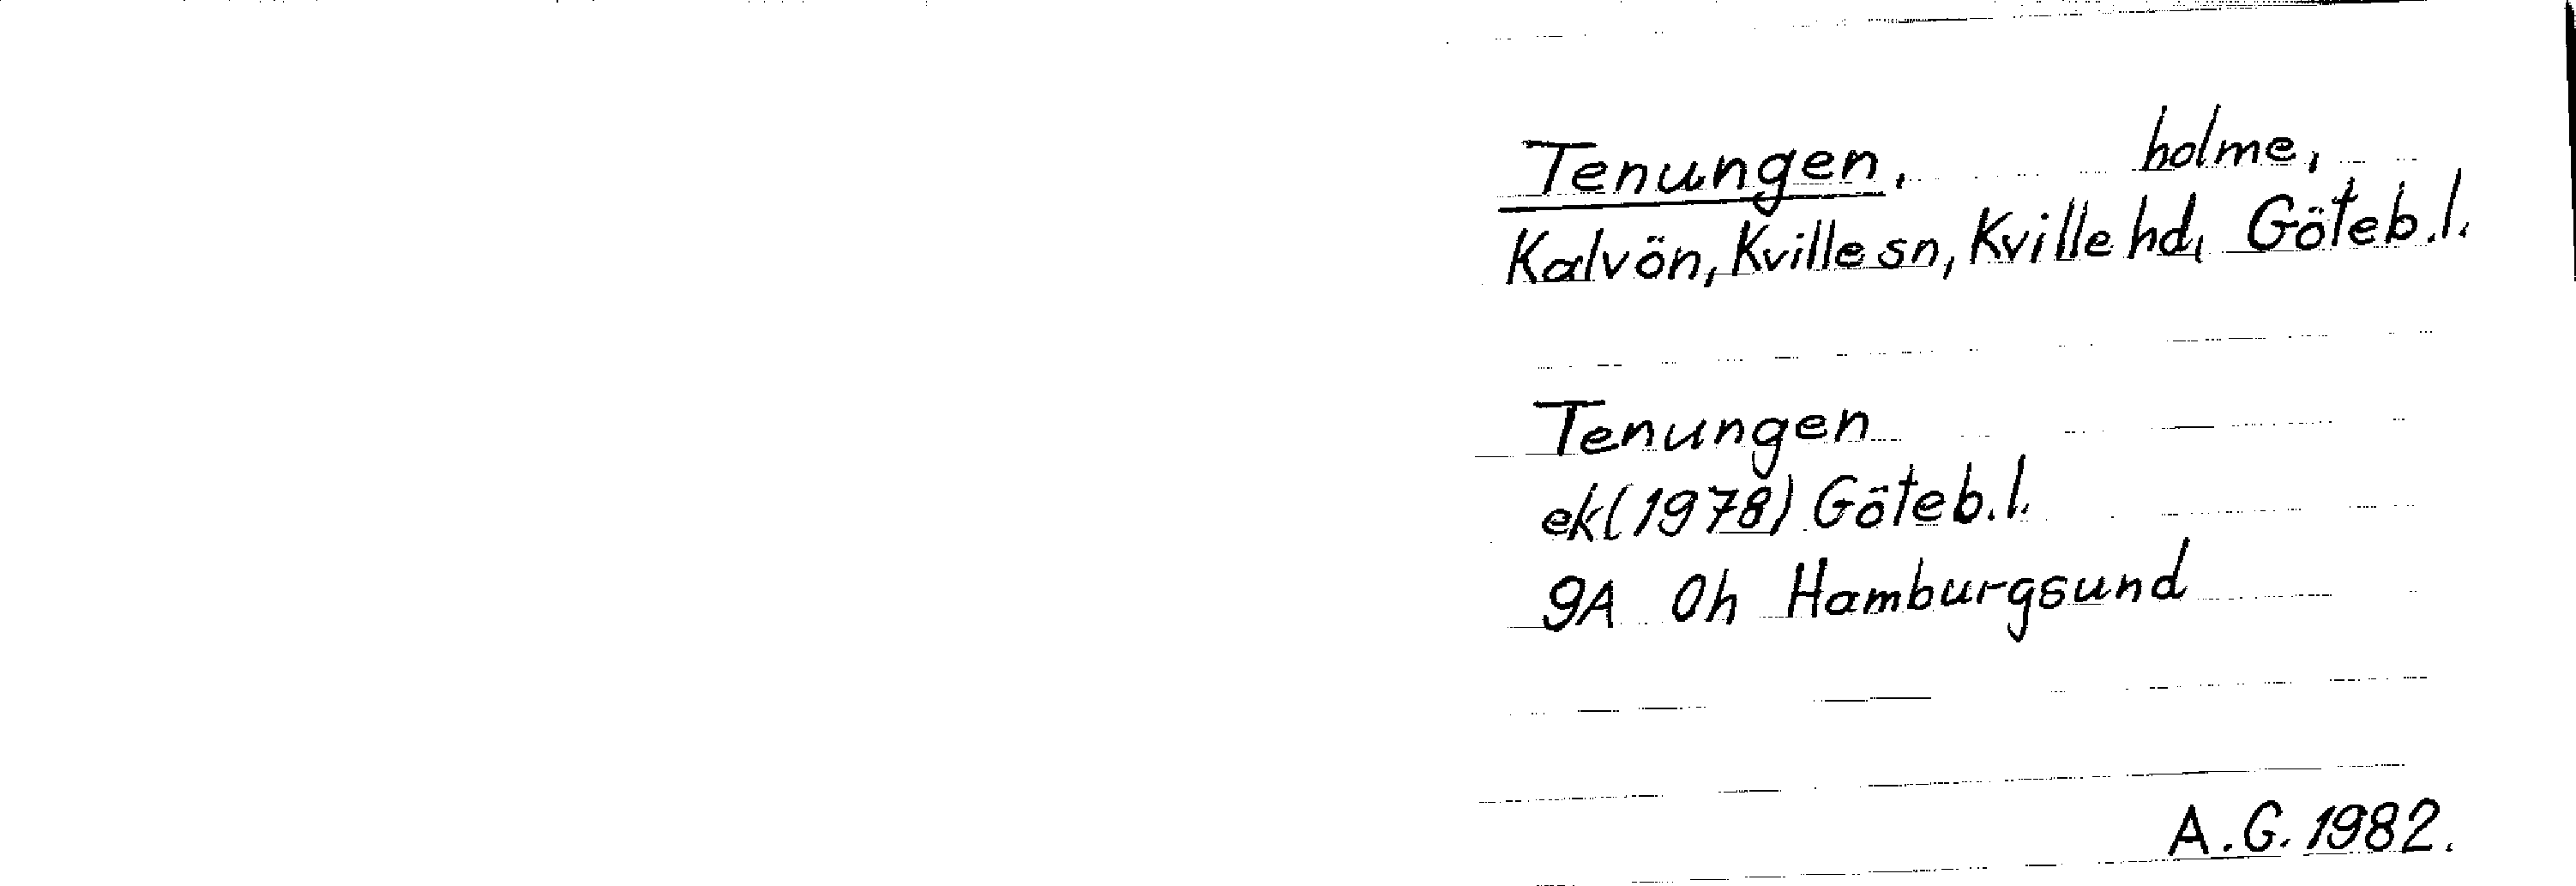 Tenungen, holme,
Kalvön, Kville sn, Kville hd, Göteb.l.
Tenungen
ek(1978) Göteb.l.
9A 0h Hamburgsund
A.G. 1982.